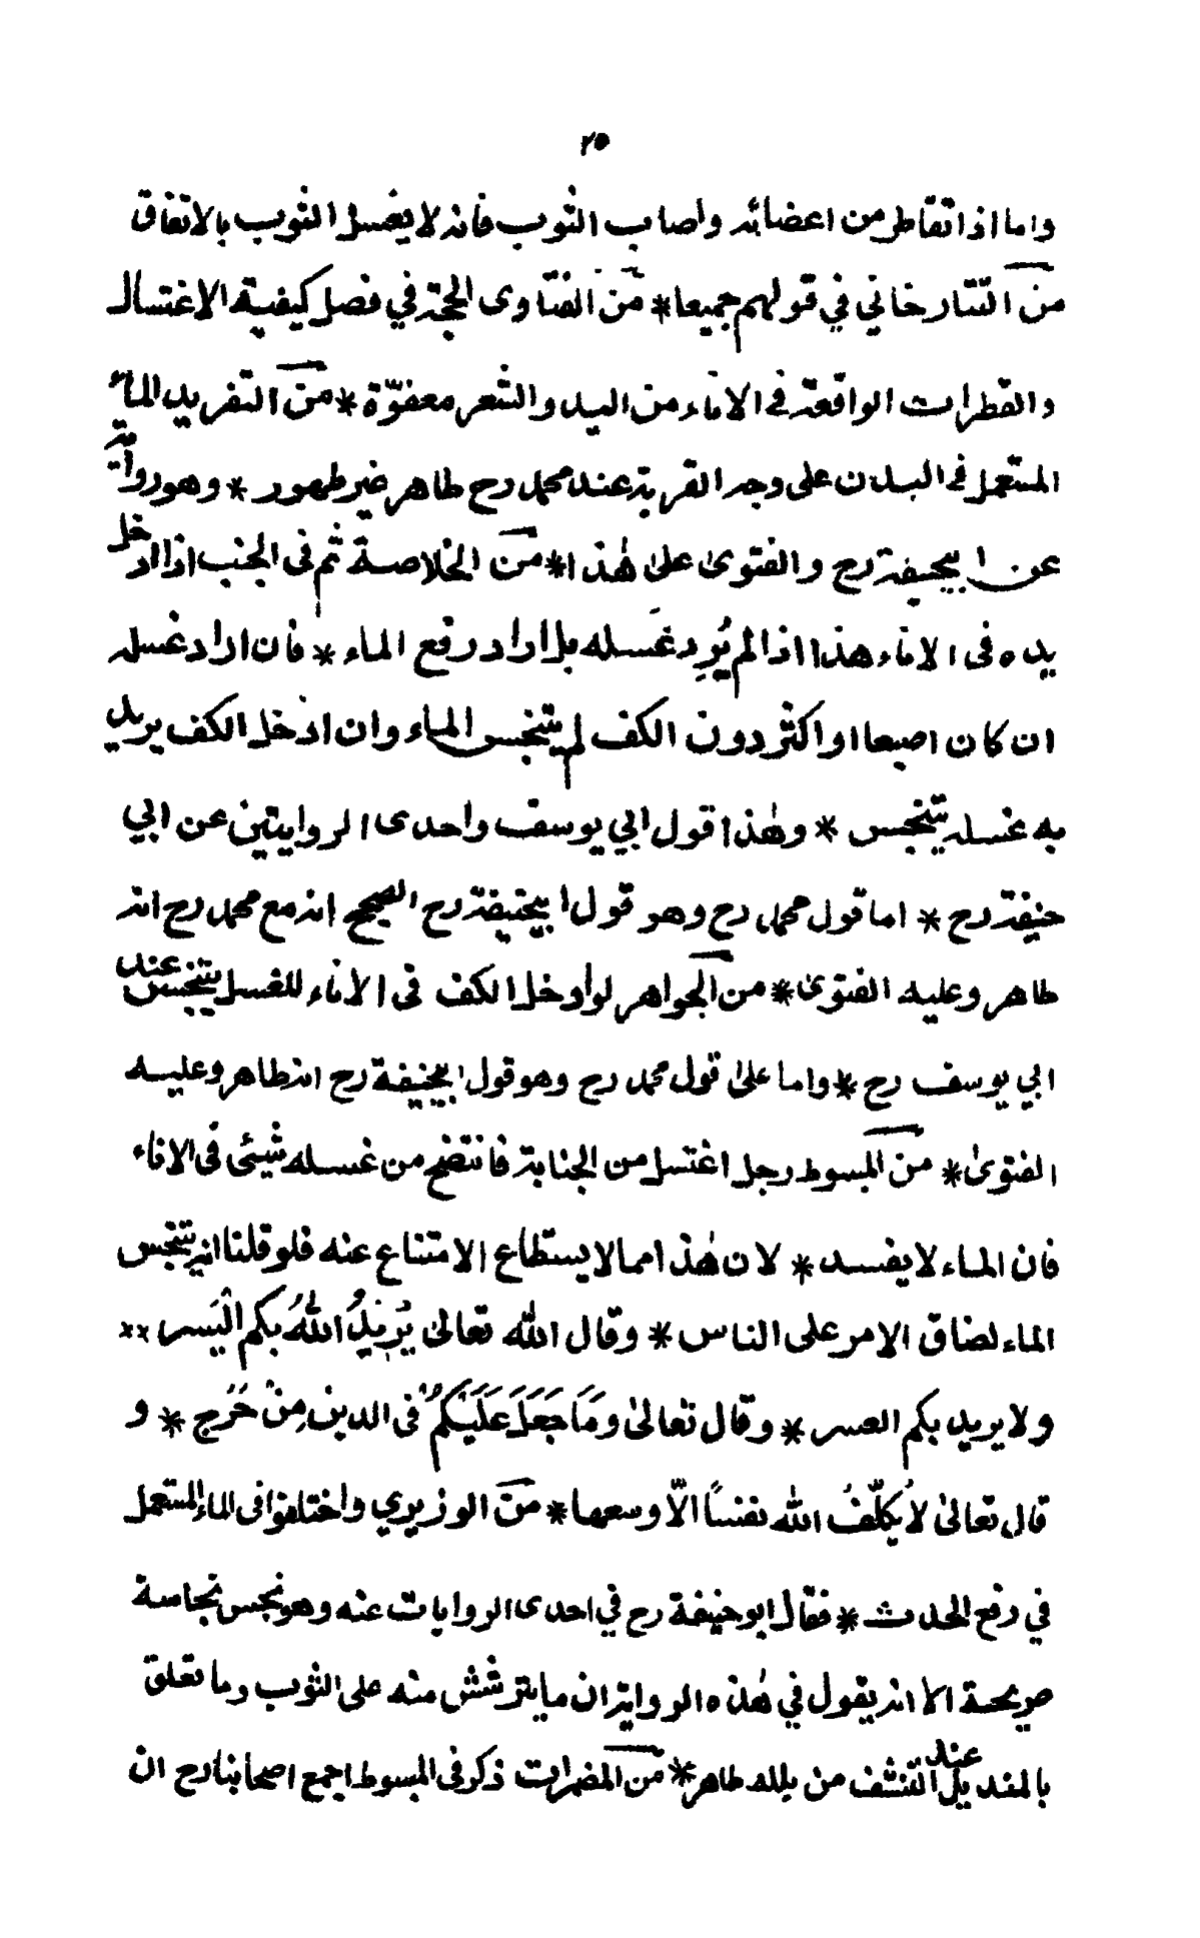 ٢٥
واما اذا تقاطر من اعضائه واصاب الثوب فانه لا يغسل الثوب بالاتفاق
من التتارخاني في قولهم جميعا * من الفتاوى الحجة في فصل كيفية الاغتسال
والقطرات الواقعة في الاناء من اليد والشعر معفوّة * من التفريد الماء
المستعمل في البدن على وجه القربة عند محمد رح طاهر غير طهور * وهو رواية
عن ابيحنيفة رح والفتوى على هذا * من الخلاصة ثم في الجنب اذا ادخل
يده في الاناء هذا اذا لم يُرِد غسله بل اراد رفع الماء * فان اراد غسله
ان كان اصبعا او اكثر دون الكف لم يتنجس الماء وان ادخل الكف يريد
به غسله يتنجس * وهذا قول ابي يوسف واحدى الروايتين عن ابي
حنيفة رح * اما قول محمد رح وهو قول ابيحنيفة رح الصحيح انه مع محمد رح انه
طاهر وعليه الفتوى * من الجواهر لو أدخل الكف في الاناء للغسل يتنجس عند
ابي يوسف رح * واما على قول محمد رح وهو قول ابيحنيفة رح انه طاهر وعليه
الفتوى * من المبسوط رجل اغتسل من الجنابة فانتضح من غسله شيئ في الاناء
فان الماء لا يفسد * لان هذا مما لا يستطاع الامتناع عنه فلو قلنا انه يتنجس
الماء لضاق الامر على الناس * وقال الله تعالى يُرِيدُ اللهُ بكم الْيُسر **
ولا يريد بكم العسر * وقال تعالى وَمَا جَعَلَ عَلَيْكُمْ في الدين مِنْ حَرَج * و
قال تعالى لاَ يُكلِّفُ الله نفسًا الاّ وسعها * من الوزيري واختلفوا في الماء المستعمل
في رفع الحدث * فقال ابو حنيفة رح في احدى الروايات عنه وهو نجس نجاسة
صريحة الا انه يقول في هذه الرواية ان ما يترشش منه على الثوب وما تعلق
بالمنديل عند التنشف من بلله طاهر * من المضمرات ذكر في المبسوط اجمع اصحابنا رح ان